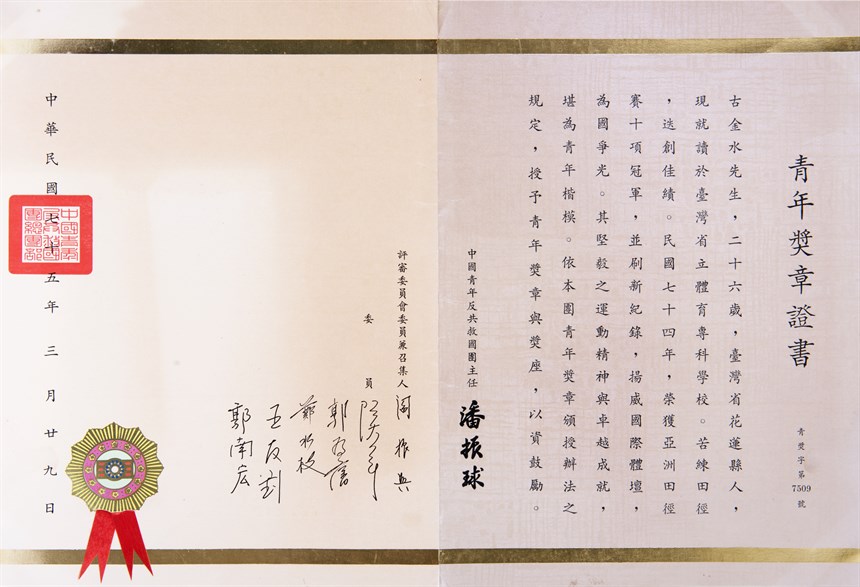 青年獎章證書
青獎字第7509號
古金水先生，二十六歲，臺灣省花蓮縣人，
現就讀於臺灣省立體育專科學校。苦練田徑
，迭創佳績。民國七十四年，榮獲亞洲田徑
賽十項冠軍，並刷新紀錄，揚威國際體壇，
為國爭光。其堅毅之運動精神與卓越成就，
堪為青年楷模。依本團青年獎章頒授辦法之
規定，授予青年獎章與獎座，以資鼓勵。
中國青年反共救國團主任 潘振球
評審委員會委員兼召集人 閻振興
委員
郭為藩
鄭水枝
郭南宏
中華民國七十五年三月廿九日
中國青年
反共救國
團總團部